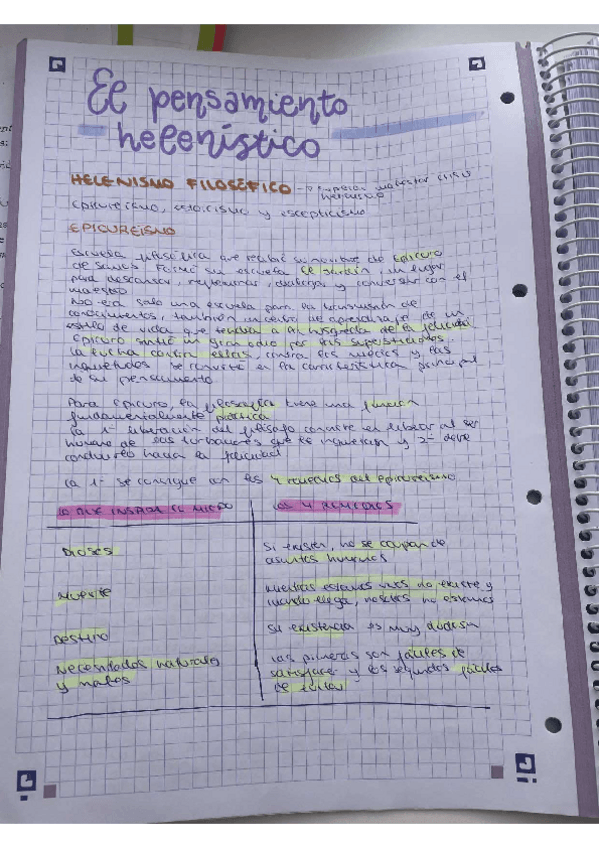 El pensamiento
helenístico
HELENISMO FILOSÓFICO → malestar crisis
helenismo
Epicureismo, estoicismo y escepticismo
EPICUREISMO
Escuela filosófica que recibe su nombre de Epicuro
de Samos. Formó su escuela El Jardín, un lugar
para descansar, dialogar y conversar con el
maestro
No era solo una escuela para la transmisión de
conocimientos, también un centro de aprendizaje de un
estilo de vida que a la búsqueda de la felicidad
Epicuro sintió un gran odio por las supersticiones
La lucha contra ellas, contra los miedos y las
inquietudes se convierte en la característica principal
de su pensamiento.
Para Epicuro, la filosofía tiene una función
fundamentalmente práctica
La 1ª liberación del filósofo consiste en liberar al ser
humano de las turbaciones que le inquietan y 2º debe
conducirlo hacia la felicidad
La 1ª se consigue con los 4 remedios del epicureismo
LO QUE INSPIRA EL MIEDO
LOS 4 REMEDIOS
DIOSES
Si existen, no se ocupan de
asuntos humanos
MUERTE
Mientras estamos vivos no existe y
cuando llega, nosotros no estamos
DESTINO
Su existencia es muy dudosa
Necesidades naturales
y males
Las primeras son fáciles de
satisfacer y los segundos fáciles
de